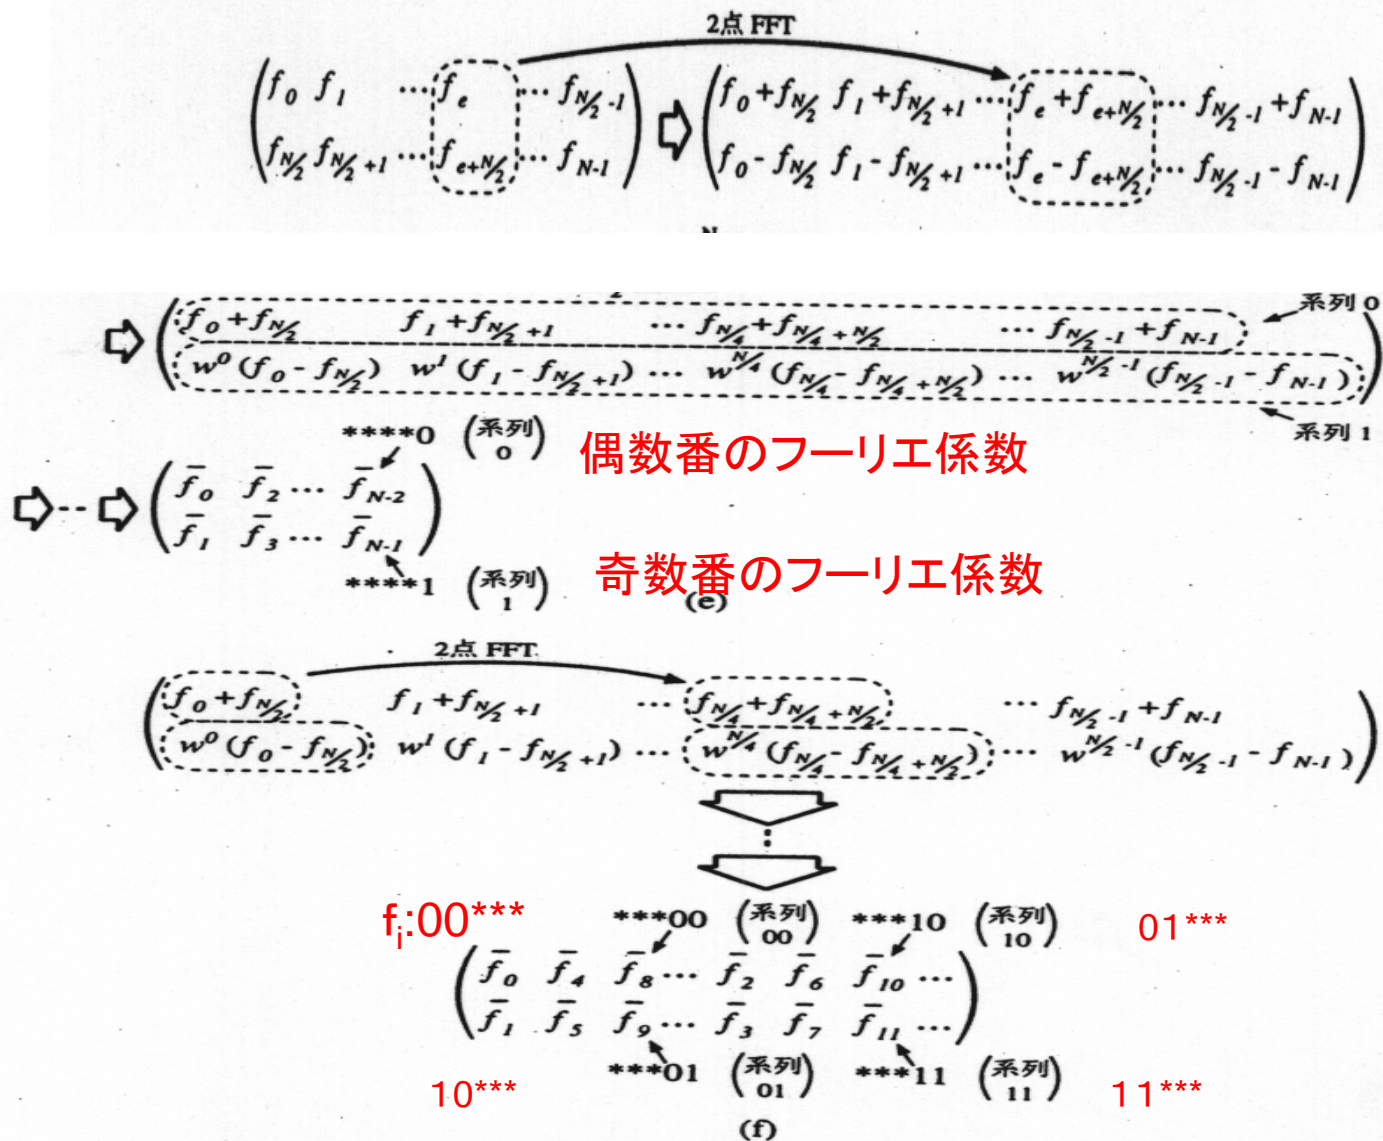 2点 FFT
f₀ f₁ ⋯ fₑ ⋯ f_{N/2-1} ⇨ f₀+f_{N/2} f₁+f_{N/2+1} ⋯ fₑ+f_{e+N/2} ⋯ f_{N/2-1}+f_{N-1}
f_{N/2} f_{N/2+1} ⋯ f_{e+N/2} ⋯ f_{N-1} f₀-f_{N/2} f₁-f_{N/2+1} ⋯ fₑ-f_{e+N/2} ⋯ f_{N/2-1}-f_{N-1}
系列 0
⇨ f₀+f_{N/2} f₁+f_{N/2+1} ⋯ f_{N/4}+f_{N/4+N/2} ⋯ f_{N/2-1}+f_{N-1}
w⁰(f₀-f_{N/2}) w¹(f₁-f_{N/2+1}) ⋯ w^{N/4}(f_{N/4}-f_{N/4+N/2}) ⋯ w^{N/2-1}(f_{N/2-1}-f_{N-1})
系列 1
****0 (系列 0) 偶数番のフーリエ係数
⇨--⇨ f̄₀ f̄₂ ⋯ f̄_{N-2}
f̄₁ f̄₃ ⋯ f̄_{N-1}
****1 (系列 1) 奇数番のフーリエ係数
(e)
2点 FFT
f₀+f_{N/2} f₁+f_{N/2+1} ⋯ f_{N/4}+f_{N/4+N/2} ⋯ f_{N/2-1}+f_{N-1}
w⁰(f₀-f_{N/2}) w¹(f₁-f_{N/2+1}) ⋯ w^{N/4}(f_{N/4}-f_{N/4+N/2}) ⋯ w^{N/2-1}(f_{N/2-1}-f_{N-1})
fᵢ:00*** ***00 (系列 00) ***10 (系列 10) 01***
f̄₀ f̄₄ f̄₈ ⋯ f̄₂ f̄₆ f̄₁₀ ⋯
f̄₁ f̄₅ f̄₉ ⋯ f̄₃ f̄₇ f̄₁₁ ⋯
10*** ***01 (系列 01) ***11 (系列 11) 11***
(f)